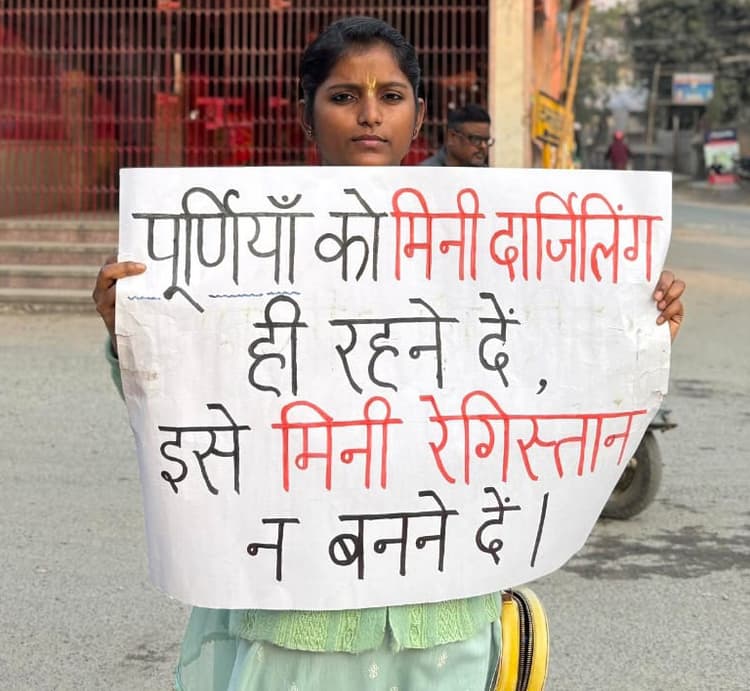 पूर्णियाँ को मिनी दार्जिलिंग
ही रहने दें,
इसे मिनी रेगिस्तान
न बनने दें।